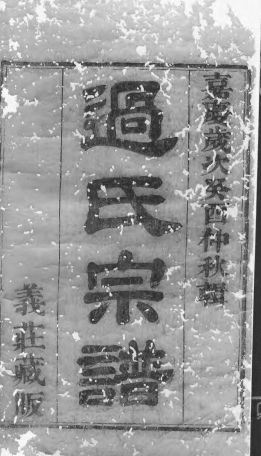 嘉慶歲次癸酉仲秋鐫
過氏宗譜
義莊藏版